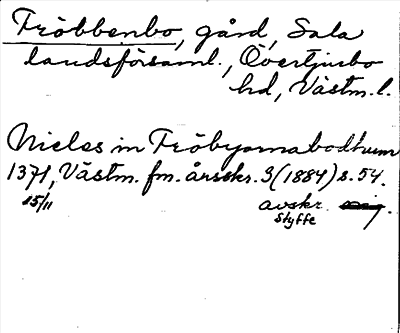 Fröbbenbo, gård, Sala
landsförsaml., Övertjurbo
hd, Västm. l.
Niclas in Fröbyarnabodhum
1371, Västm. fm. årsskr. 3 (1884) s. 54.
15/11 avskr.
Styffe